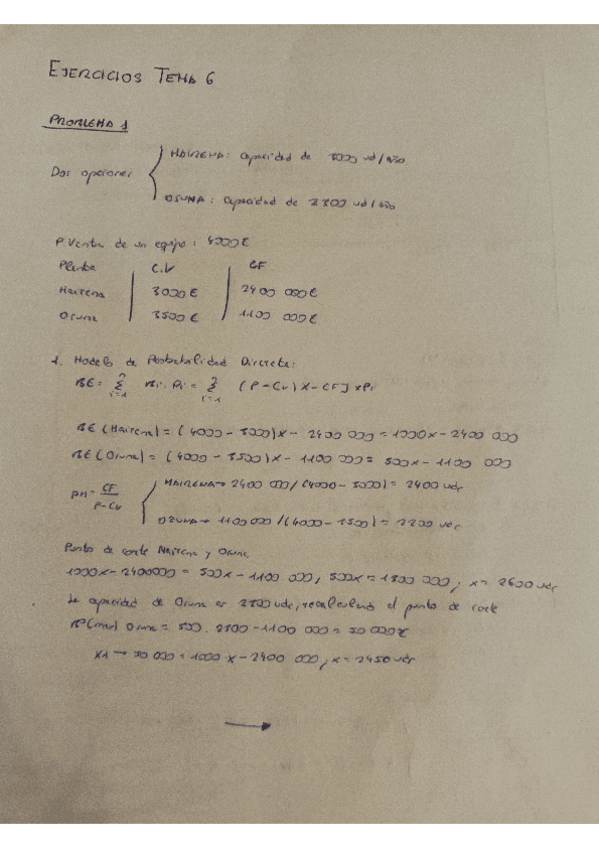 EJERCICIOS TEMA 6
PROBLEMA 1
Dos opciones
MAIRENA: Capacidad de 5000 ud/año
OSUNA: Capacidad de 2300 ud/año
P. Venta de un equipo: 4000€
Planta C.V CF
Mairena 3000€ 2400 000€
Osuna 3500€ 1100 000€
1. Modelo de Probabilidad Discreta:
BE = Σ Bi · Pi = Σ [(P-Cv)X - CF] x Pi
i=1 i=1
BE (Mairena) = (4000 - 3000)x - 2400 000 = 1000x - 2400 000
BE (Osuna) = (4000 - 3500)x - 1100 000 = 500x - 1100 000
PM = CF / P-Cv
MAIRENA → 2400 000/(4000 - 3000) = 2400 uds
OSUNA → 1100 000/(4000 - 3500) = 2200 uds
Punto de corte Mairena y Osuna
1000x - 2400000 = 500x - 1100 000, 500x = 1300 000; x = 2600 uds
La capacidad de Osuna es 2300 uds, recalculando el punto de corte
Bº(max) Osuna = 500 · 2300 - 1100 000 = 50 000€
X1 → 50 000 = 1000 x - 2400 000, x = 2450 uds